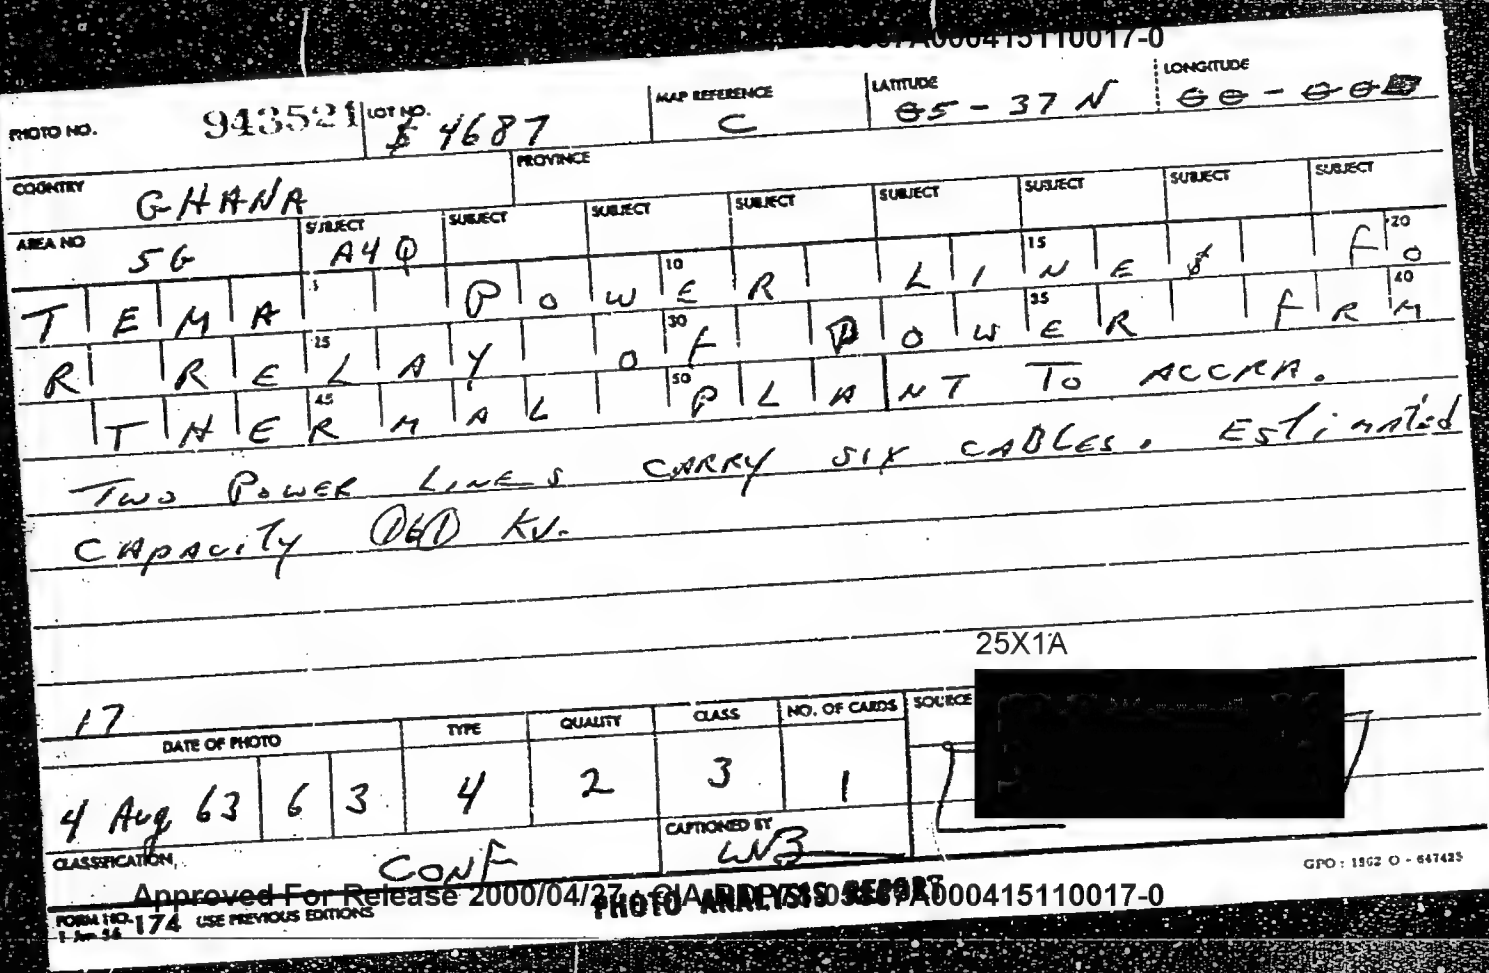 A000415110017-0
PHOTO NO. 943521 LOT NO. 4687 MAP REFERENCE C LATITUDE 05-37 N LONGITUDE 00-00
COUNTRY GHANA PROVINCE
AREA NO 5G SUBJECT A4Q SUBJECT SUBJECT SUBJECT SUBJECT SUBJECT SUBJECT SUBJECT
TEMA 5 POWER 10 LINES 15 FO 20
R RELAY 25 OF 30 POWER 35 FRM 40
THERMAL 45 PLANT 50 TO ACCRA.
TWO POWER LINES CARRY SIX CABLES. Estimated
CAPACITY KV.
25X1A
17
DATE OF PHOTO TYPE QUALITY CLASS NO. OF CARDS SOURCE
4 Aug 63 6 3 4 2 3 1
CLASSIFICATION CONF CAPTIONED BY WB
GPO : 1962 O - 647425
Approved For Release 2000/04/27 : CIA-RDP A000415110017-0
PHOTO ANALYSIS REPORT
FORM NO. 174 USE PREVIOUS EDITIONS
1 Jun 56